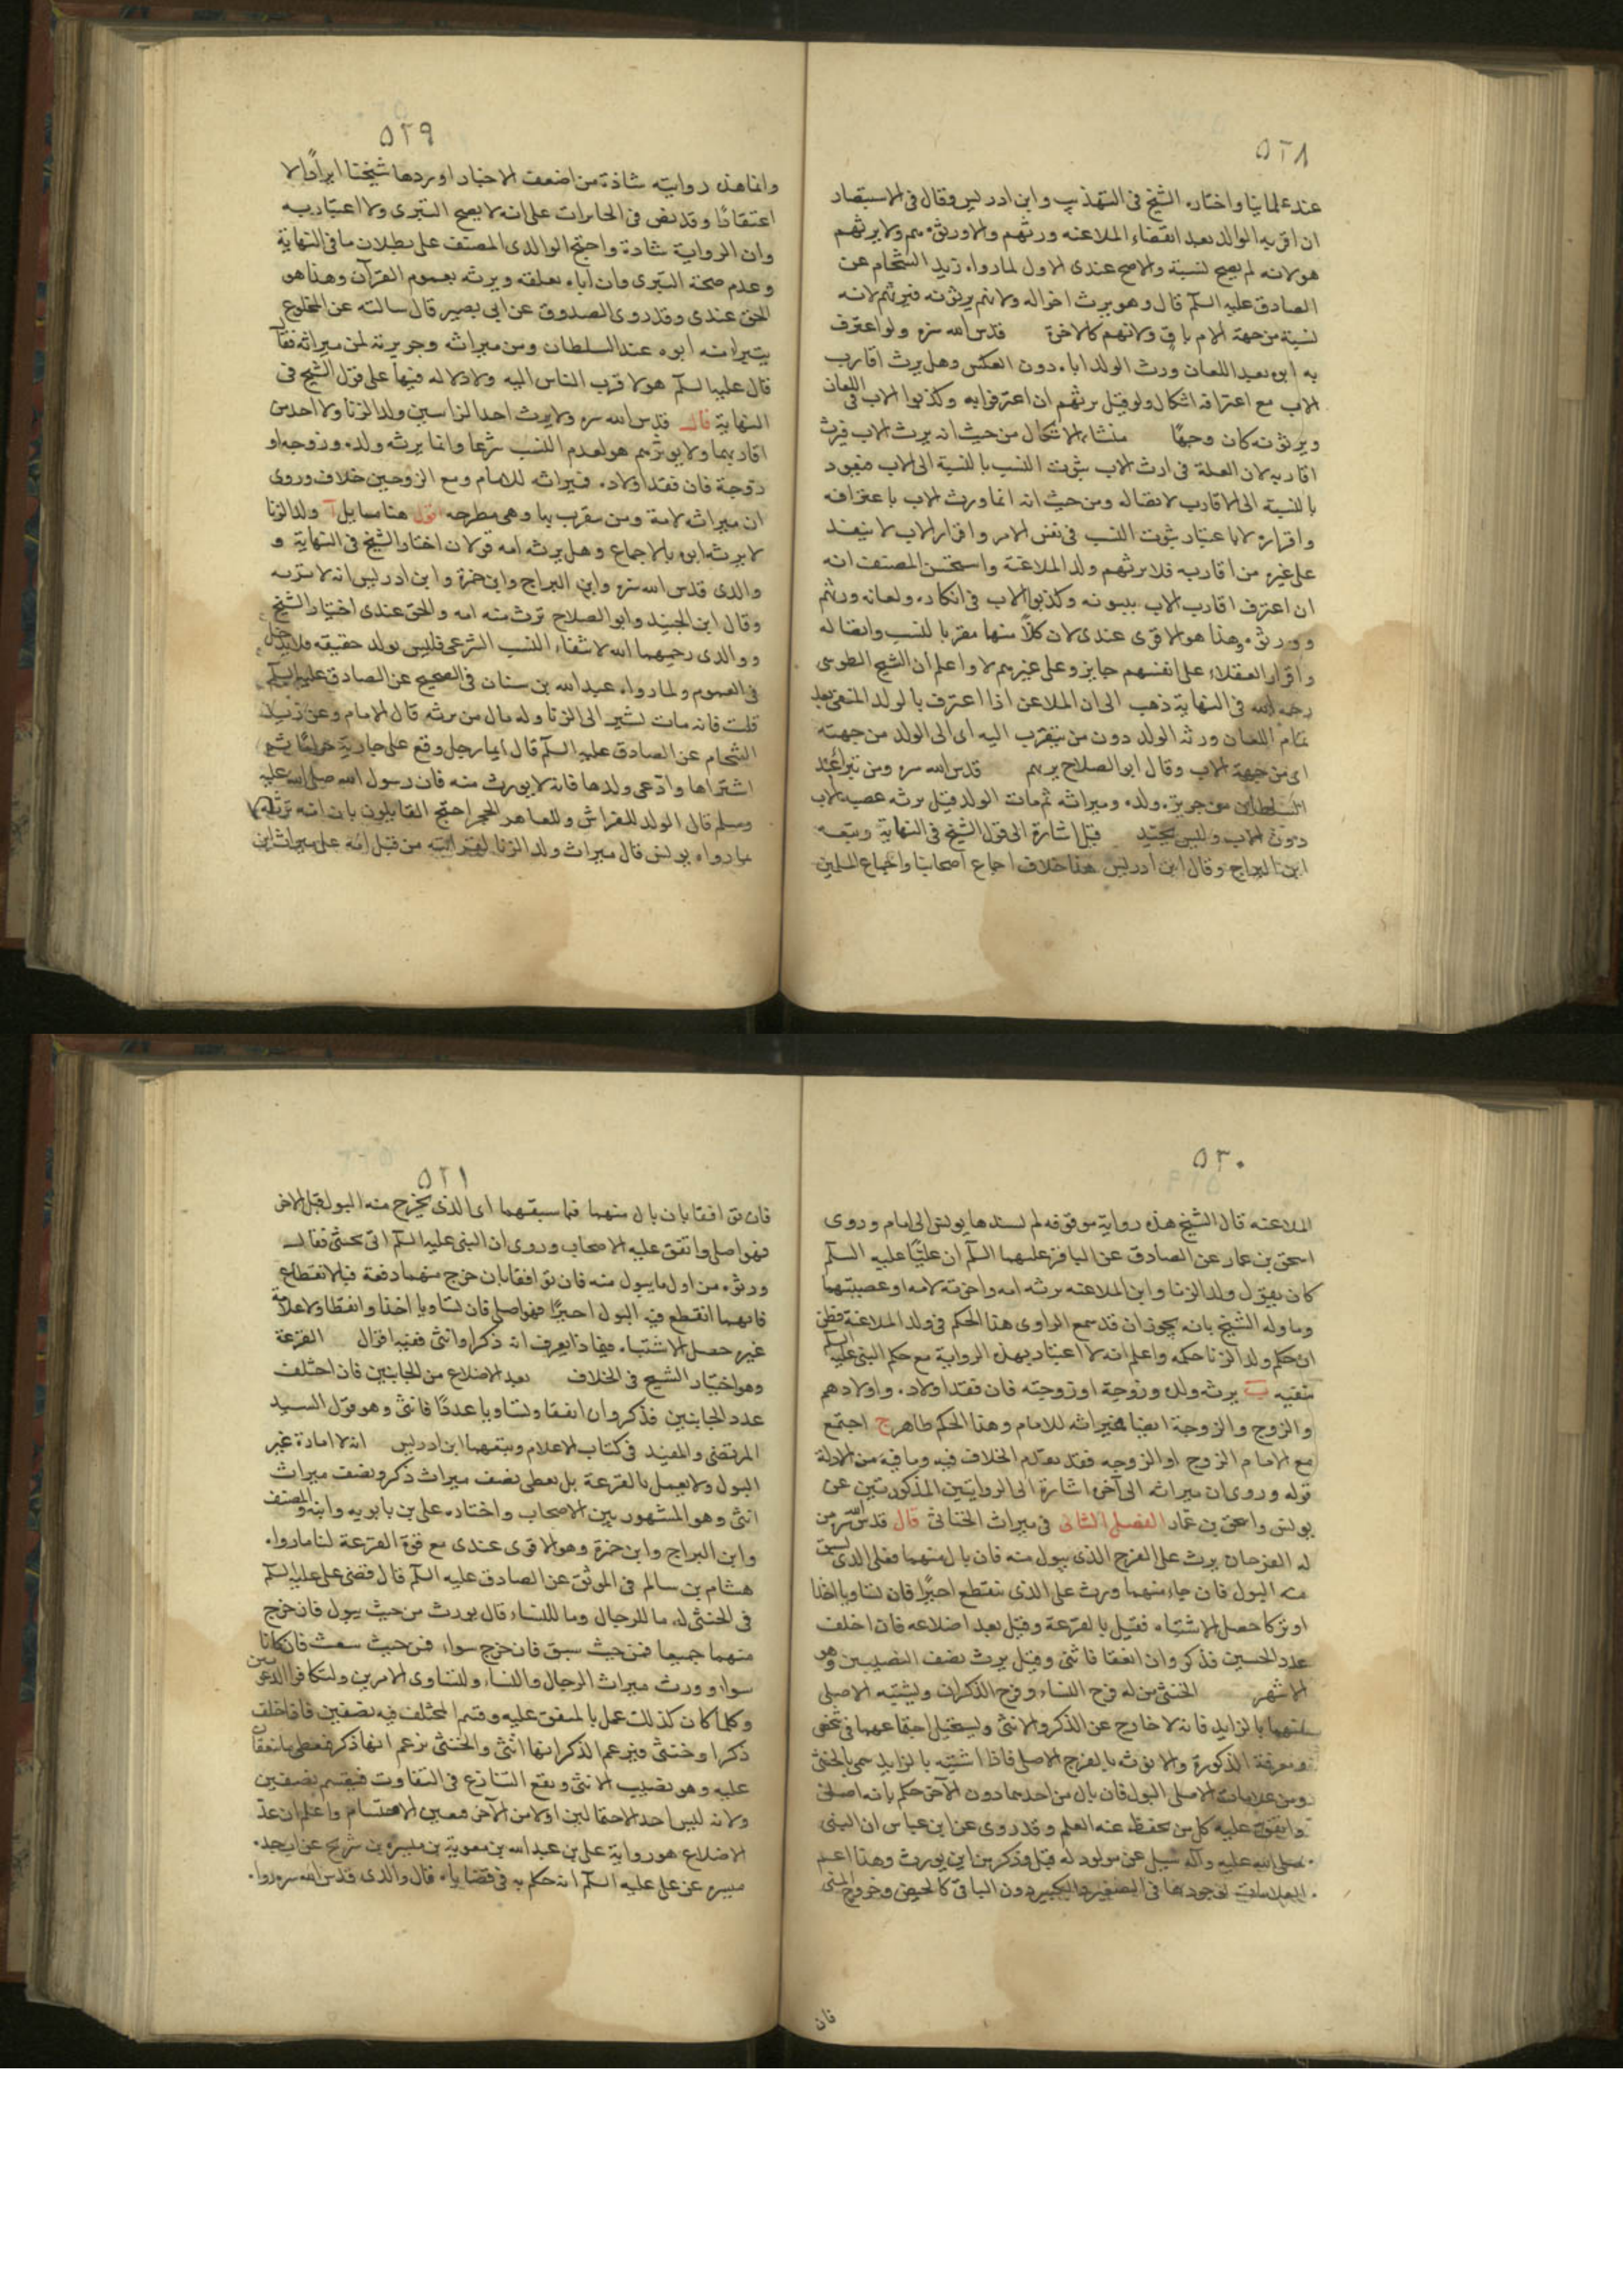 ٥٢٨
عند علمائنا واختاره الشيخ في التهذيب وابن ادريس وقال في الاستبصار
ان اقر به الوالد بعد انقضاء الملاعنه ورثهم والا ورثوه هم ولا يرثهم
هو لانه لم يصح نسبة والاصح عندى الاول لما رواه زيد الشحام عن
الصادق عليه السلم قال وهو يرث اخواله ولانهم يرثونه فيرثهم لانه
نسبة من جهة الام باق ولانهم كالاخوة قدس الله سره ولو اعترف
به ابوه بعد اللعان ورث الولد اباه دون العكس وهل يرث اقارب
الاب مع اعترافه اشكال ولو قيل يرثهم ان اعترفوا به وكذبوا الاب في اللعان
ويرثونه كان وجها منشاء الاشكال من حيث انه يرث الاب فيرث
اقاربه لان العلة في ارث الاب ثبوت النسب بالنسبة الى الاب فيعود
بالنسبة الى الاقارب لاتصاله ومن حيث انه انما ورث الاب باعترافه
واقراره لا باعتبار ثبوت النسب في نفس الامر واقرار الاب لا ينفذ
على غيره من اقاربه فلا يرثهم ولد الملاعنة واستحسن المصنف انه
ان اعترف اقارب الاب ببنوته وكذبوا الاب في انكاره ولعانه ورثهم
وورثوه وهذا هو الاقوى عندى لان كلا منها مقر بالنسب واتصاله
واقرار العقلاء على انفسهم جايز وعلى غيرهم لا واعلم ان الشيخ الطوسى
رحمه الله في النهاية ذهب الى ان الملاعن اذا اعترف بالولد المنفى بعد
تمام اللعان ورثه الولد دون من يتقرب اليه اى الى الولد من جهته
اى من جهة الاب وقال ابو الصلاح يرثهم قدس الله سره ومن تبرا عند
السلطان من جريرة ولده وميراثه ثم مات الولد قيل يرثه عصبه الاب
دون الاب وليس بجيد قيل اشارة الى قول الشيخ في النهاية وتبعه
ابن البراج وقال ابن ادريس هذا خلاف اجماع اصحابنا واجماع المسلمين
٥٢٩
وانما هذه رواية شاذة من اضعف الاخبار اوردها شيخنا ايرادا لا
اعتقادا وقد نص في الحايرات على انه لا يصح التبرى ولا اعتبار به
وان الرواية شاذة واحتج الوالدى المصنف على بطلان ما في النهاية
وعدم صحة التبرى وان اباه يعلقه ويرثه بعموم القرآن وهذا هو
الحق عندى وقد روى الصدوق عن ابى بصير قال سالته عن المخلوع
يتبرا منه ابوه عند السلطان ومن ميراثه وجريرته لمن ميراثه فقا
قال عليه السلم هو لاقرب الناس اليه ولا دلاله فيها على قول الشيخ في
النهاية قال قدس الله سره ولا يرث احد الزانيين ولد الزنا ولا احد من
اقاربهما ولا يورثهم هو لعدم النسب شرعا وانما يرثه ولده وزوجه او
زوجة فان فقد اولاده فميراثه للامام ومع الزوجين خلاف وروى
ان ميراثه لامه ومن يتقرب بها وهى مطرحه اقول هنا مسايل آ ولد الزنا
لا يرثه ابوه بالاجماع وهل يرثه امه قولان اختار الشيخ في النهاية و
والدى قدس الله سره وابن البراج وابن حمزة وابن ادريس انه لا ترثه
وقال ابن الجنيد وابو الصلاح ترث منه امه والحق عندى اختيار الشيخ
ووالدى رحمهما الله لانتفاء النسب الشرعى فليس بولد حقيقه فلا يدخل
في العموم ولما رواه عبد الله بن سنان في الصحيح عن الصادق عليه السلم
قلت فانه مات بشير الى الزنا وله مال من يرثه قال الامام وعن زيد
الشحام عن الصادق عليه السلم قال ايما رجل وقع على جارية حراما ثم
اشتراها وادعى ولدها فانه لا يورث منه فان رسول الله صلى الله عليه
وسلم قال الولد للفراش وللعاهر الحجر احتج القايلون بان امه ترثه بما
ما رواه يونس قال ميراث ولد الزنا لقرابته من قبل امه على ميراث ابن
٥٣٠
الملاعنه قال الشيخ هذه رواية موقوفه لم يسندها يونس الى امام وروى
اسحق بن عمار عن الصادق عن الباقر عليهما السلم ان عليا عليه السلم
كان يقول ولد الزنا وابن الملاعنه يرثه امه واخوته لامه او عصبتهما
وما وله الشيخ بانه يجوز ان قد سمع الراوى هذا الحكم في ولد الملاعنة فظن
ان حكم ولد الزنا حكمه واعلم انه لا اعتبار بهذه الرواية مع حكم النبى عليه السلم
بنفيه ب يرثه ولده وزوجة او زوجته فان فقد اولاده واولادهم
والزوج والزوجة ايضا فميراثه للامام وهذا الحكم ظاهر ج اجتمع
مع الامام الزوج او الزوجه فقد تقدم الخلاف فيه وما فيه من الادلة
قوله وروى ان ميراثه الى آخره اشارة الى الروايتين المذكورتين عن
يونس واسحق بن عمار الفصل الثانى في ميراث الخناثى قال قدس الله سره من
له الفرجان يرث على الفرج الذى يبول منه فان بال منهما فعلى الذى يسبق
منه البول فان جاء منهما ورث على الذى ينقطع اخيرا فان تساويا اخذا
او تركا حصل الاشتباه فقيل بالقرعة وقيل بعد اضلاعه فان اختلف
عدد الجنبين فذكر وان اتفقا فانثى وقيل يرث نصف النصيبين وهو
الاشهر الخنثى من له فرج النساء وفرج الذكران ويشتبه الاصلى
منهما بالزايد فانه لا خارج عن الذكر والانثى ويستحيل اجتماعهما في شخص
ومعرفة الذكورة والانوثه بالفرج الاصلى فاذا اشتبه بالزايد سمى بالخنثى
ومن علامات الاصلى البول فان بال من احدهما دون الآخر حكم بانه اصلى
واتفق عليه كل من يحفظ عنه العلم وقد روى عن ابن عباس ان النبى
صلى الله عليه وآله سيل عن مولود له قبل وذكر من اين يورث وهذا اعم
العلامات لوجودها في الصغير والكبير دون الباقى كالحيض وخروج المنى
فان
٥٣١
فان توافقا بان بال منهما فما سبقهما اى الذى يخرج منه البول قبل الاخر
فهو اصلى واتفق عليه الاصحاب وروى ان النبى عليه السلم اتى بخنثى فقال
ورثوه من اول ما يبول منه فان توافقا بان خرج منهما دفعة فبالانقطاع
فايهما انقطع فيه البول اخيرا فهو اصلى فان تساويا اخذا وانقطاعا ولا علامة
غيره حصل الاشتباه فبماذا يعرف انه ذكر او انثى ففيه اقوال القرعة
وهو اختيار الشيخ في الخلاف بعد الاضلاع من الجانبين فان اختلف
عدد الجانبين فذكر وان اتفقا وتساويا عددا فانثى وهو قول السيد
المرتضى والمفيد في كتاب الاعلام وتبعهما ابن ادريس انه لا امارة غير
البول ولا يعمل بالقرعة بل يعطى نصف ميراث ذكر ونصف ميراث
انثى وهو المشهور بين الاصحاب واختاره على بن بابويه وابنه والمصنف
وابن البراج وابن حمزة وهو الاقوى عندى مع قوة القرعة لنا ما رواه
هشام بن سالم في الموثق عن الصادق عليه السلم قال قضى على عليه السلم
في الخنثى له ما للرجال وما للنساء قال يورث من حيث يبول فان خرج
منهما جميعا فمن حيث سبق فان خرج سواء فمن حيث ينبعث فان كانا
سواء ورث ميراث الرجال والنساء ولتساوى الامرين ولتكافوا الدعويين
وكلما كان كذلك عمل بالمتفق عليه وقسم المختلف فيه نصفين فاذا خلف
ذكرا وخنثى فيزعم الذكر انها انثى والخنثى يزعم انها ذكر فيعطى ما اتفقا
عليه وهو نصيب الانثى ويقع التنازع في التفاوت فيقسم نصفين
ولانه ليس احد الاحتمالين اولا من الآخر فتعين الاقتسام واعلم ان عد
الاضلاع هو رواية على بن عبد الله بن معوية بن ميسرة بن شريح عن ابيه عن جده
ميسره عن على عليه السلم انه حكم به في قضاياه قال والدى قدس الله سره رواه